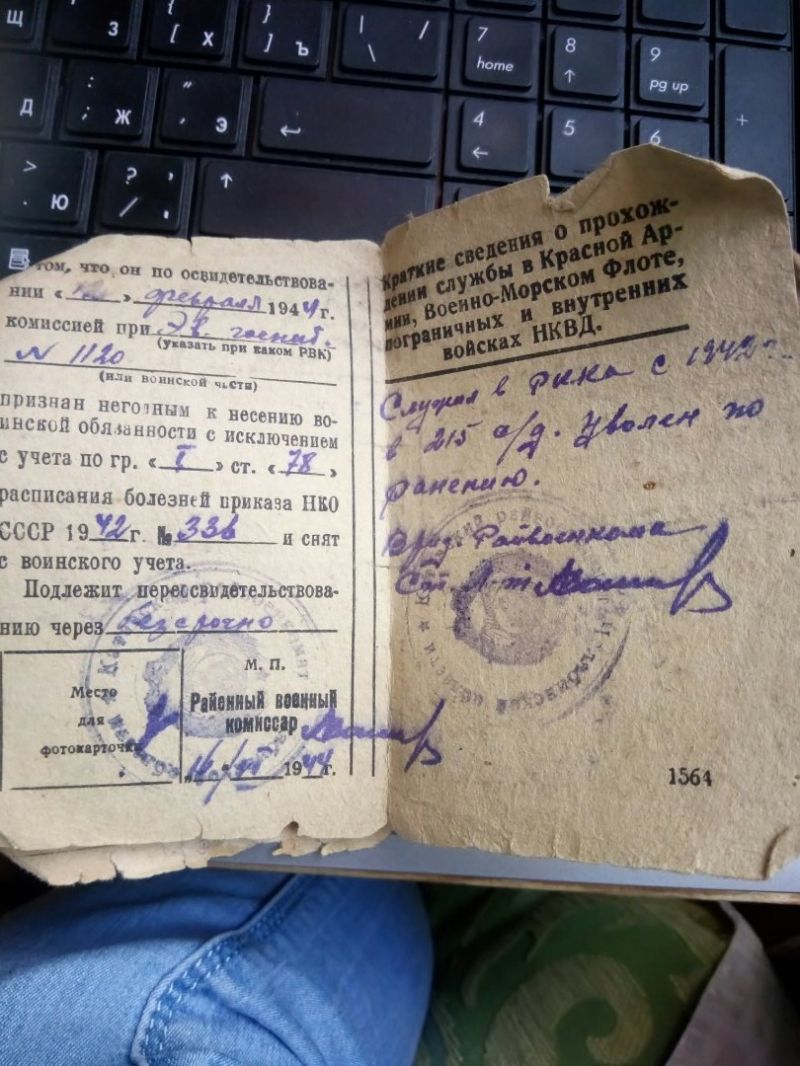 Щ
3
{
[ Х
}
] Ъ
|
\ /
7
home
8
↑
9
pg up
Д
:
; Ж
"
' Э
4
←
5
6
+
>
. Ю
?
/
том, что он по освидетельствова-
нии « » февраля 1944 г.
комиссией при Эв. госпит.
(указать при каком РВК)
N 1120
(или воинской части)
признан негодным к несению во-
инской обязанности с исключением
с учета по гр. « I » ст. « 78 »
расписания болезней приказа НКО
СССР 1942 г. № 336 и снят
с воинского учета.
Подлежит переосвидетельствова-
нию через безсрочно
Место
для
фотокарточки
М. П.
Районный военный
комиссар
1944 г.
Краткие сведения о прохож-
дении службы в Красной Ар-
мии, Военно-Морском Флоте,
пограничных и внутренних
войсках НКВД.
Служил в РККА с 1942 г.
в 215 с/д. Уволен по
ранению.
Врид. Райвоенкома
Ст. Л-т
1564